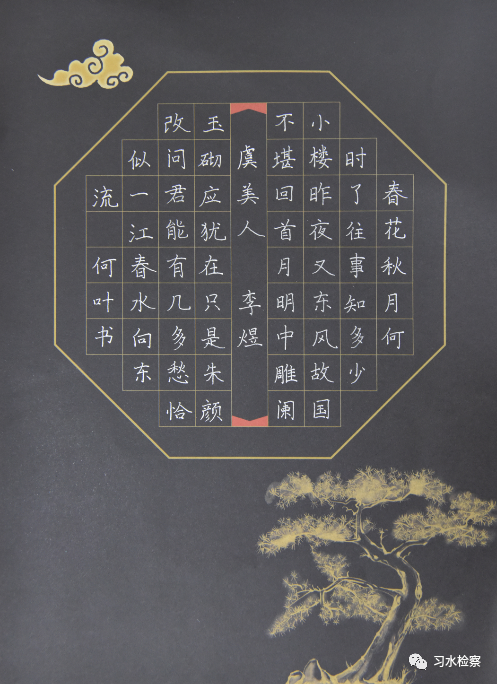 春花秋月何
时了往事知多少
小楼昨夜又东风故国
不堪回首月明中雕阑
虞美人 李煜
玉砌应犹在只是朱颜
改问君能有几多愁恰
似一江春水向东
流 何叶书
习水检察